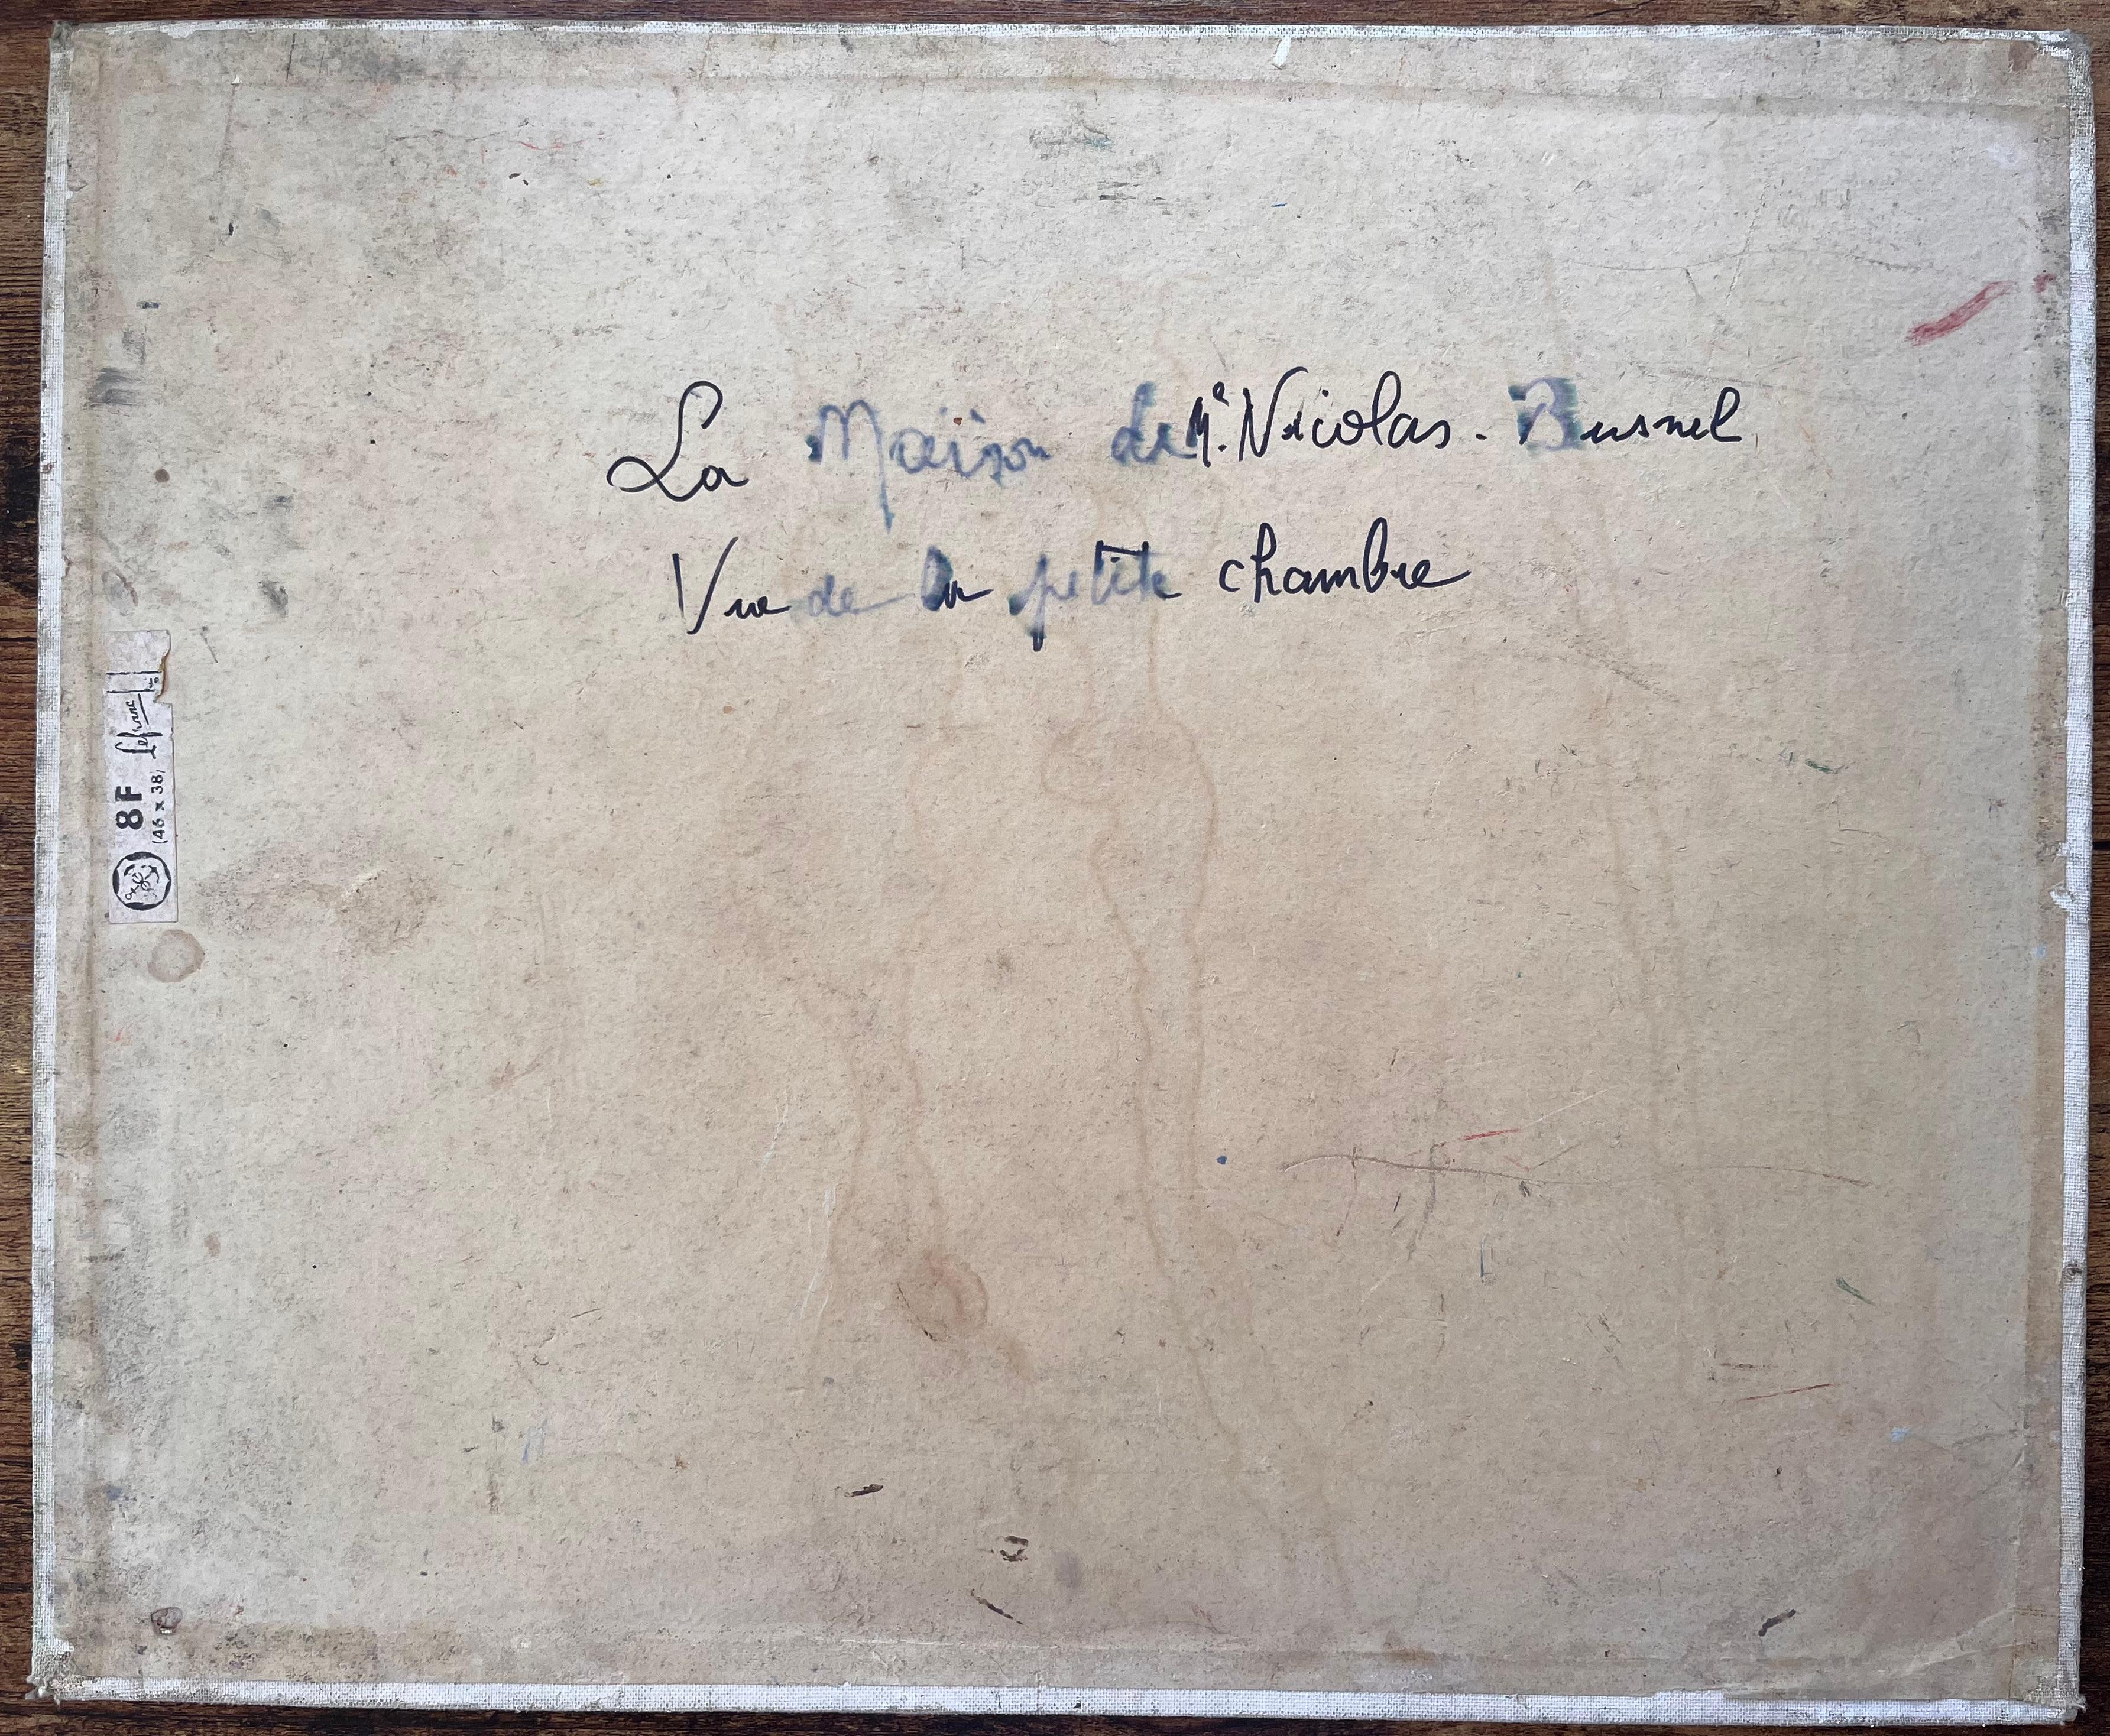 La Maison de Me. Nicolas - Busnel
Vue de la petite chambre
8F Lefranc
(46 x 38)